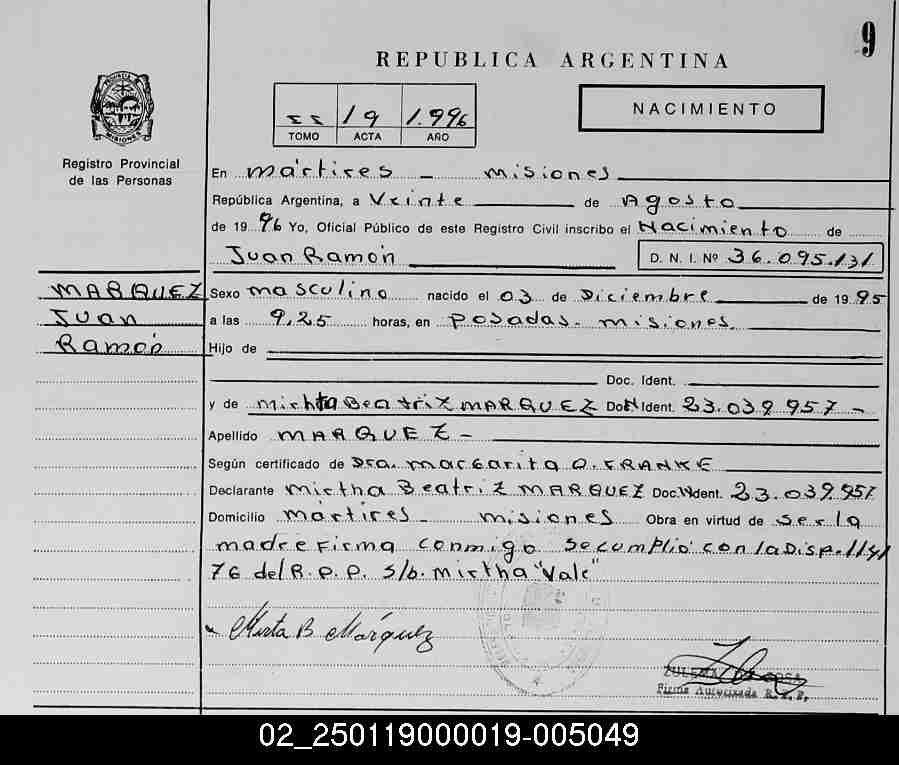 9
REPUBLICA ARGENTINA
19 1.996
TOMO ACTA AÑO
NACIMIENTO
PROVINCIA DE MISIONES
Registro Provincial
de las Personas
En mártires - misiones
República Argentina, a Veinte de Agosto
de 1996 Yo, Oficial Público de este Registro Civil inscribo el Nacimiento de
Juan Ramón D. N. I. Nº 36.095.131
MARQUEZ
Juan
Ramón
Sexo masculino nacido el 03 de Diciembre de 1995
a las 9,25 horas, en Posadas. misiones.
Hijo de
Doc. Ident.
y de Mirtha Beatriz MARQUEZ Doc. Ident. 23.039.957 -
Apellido MARQUEZ -
Según certificado de Dra. Margarita O. FRANKE
Declarante Mirtha Beatriz MARQUEZ Doc. Ident. 23.039.957
Domicilio martires - misiones Obra en virtud de ser la
madre Firma conmigo se cumplió con la Disp.
76 del R.P.P. S/b. Mirtha "Vale"
Mirta B Márquez
ZULEMA
Firma Autorizada R.P.P.
02_250119000019-005049